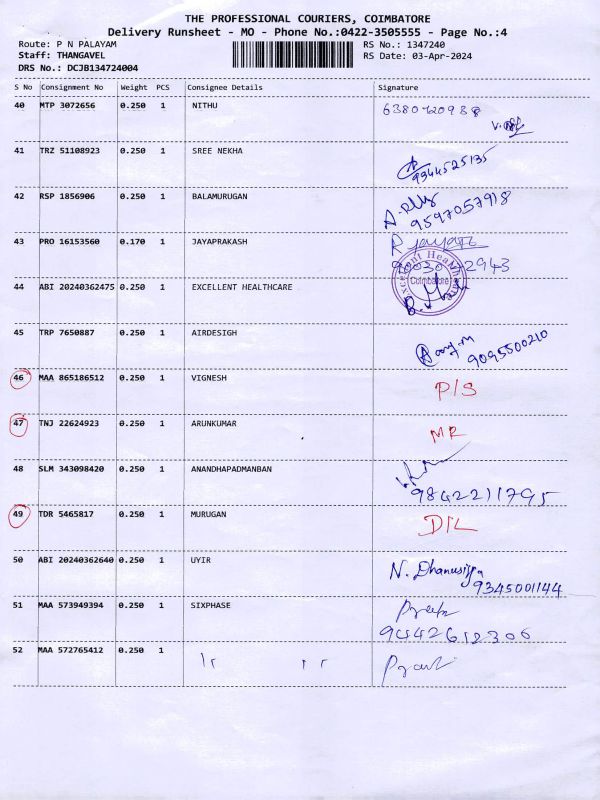 THE PROFESSIONAL COURIERS, COIMBATORE
Delivery Runsheet - MO - Phone No.:0422-3505555 - Page No.:4
Route: P N PALAYAM RS No.: 1347240
Staff: THANGAVEL RS Date: 03-Apr-2024
DRS No.: DCJB134724004
S No Consignment No Weight PCS Consignee Details Signature
40 MTP 3072656 0.250 1 NITHU
41 TRZ 51108923 0.250 1 SREE NEKHA
9344525135
42 RSP 1856906 0.250 1 BALAMURUGAN
9597057918
43 PRO 16153560 0.170 1 JAYAPRAKASH
Excellent Healthcare
Coimbatore
44 ABI 20240362475 0.250 1 EXCELLENT HEALTHCARE
45 TRP 7650887 0.250 1 AIRDESIGH
9095500210
46 MAA 865186512 0.250 1 VIGNESH P/S
47 TNJ 22624923 0.250 1 ARUNKUMAR MR
48 SLM 343098420 0.250 1 ANANDHAPADMANBAN
9842211795
49 TDR 5465817 0.250 1 MURUGAN D/L
50 ABI 20240362640 0.250 1 UYIR
9345001144
51 MAA 573949394 0.250 1 SIXPHASE
9442612306
52 MAA 572765412 0.250 1